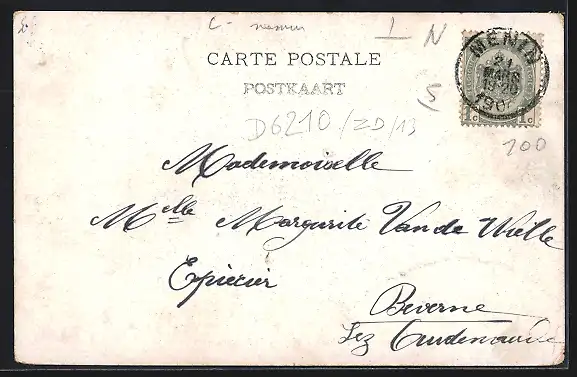 C- namur
N
CARTE POSTALE
POSTKAART
MENIN
21
MARS
19-20
190
1c 1c
5
D6210/ZD/13
100
Mademoiselle
Melle Margurite Van de Wielle
Epicier
Beverne
Lez Audenarde